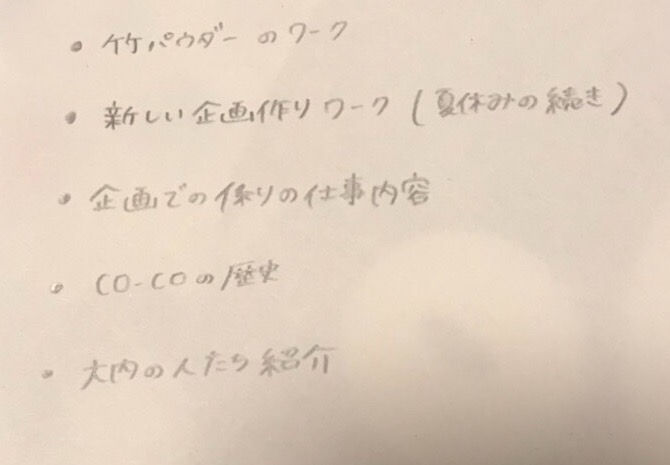 • 竹パウダーのワーク
• 新しい企画作りワーク(夏休みの続き)
• 企画での係りの仕事内容
• CO-COの歴史
• 大内の人たち紹介